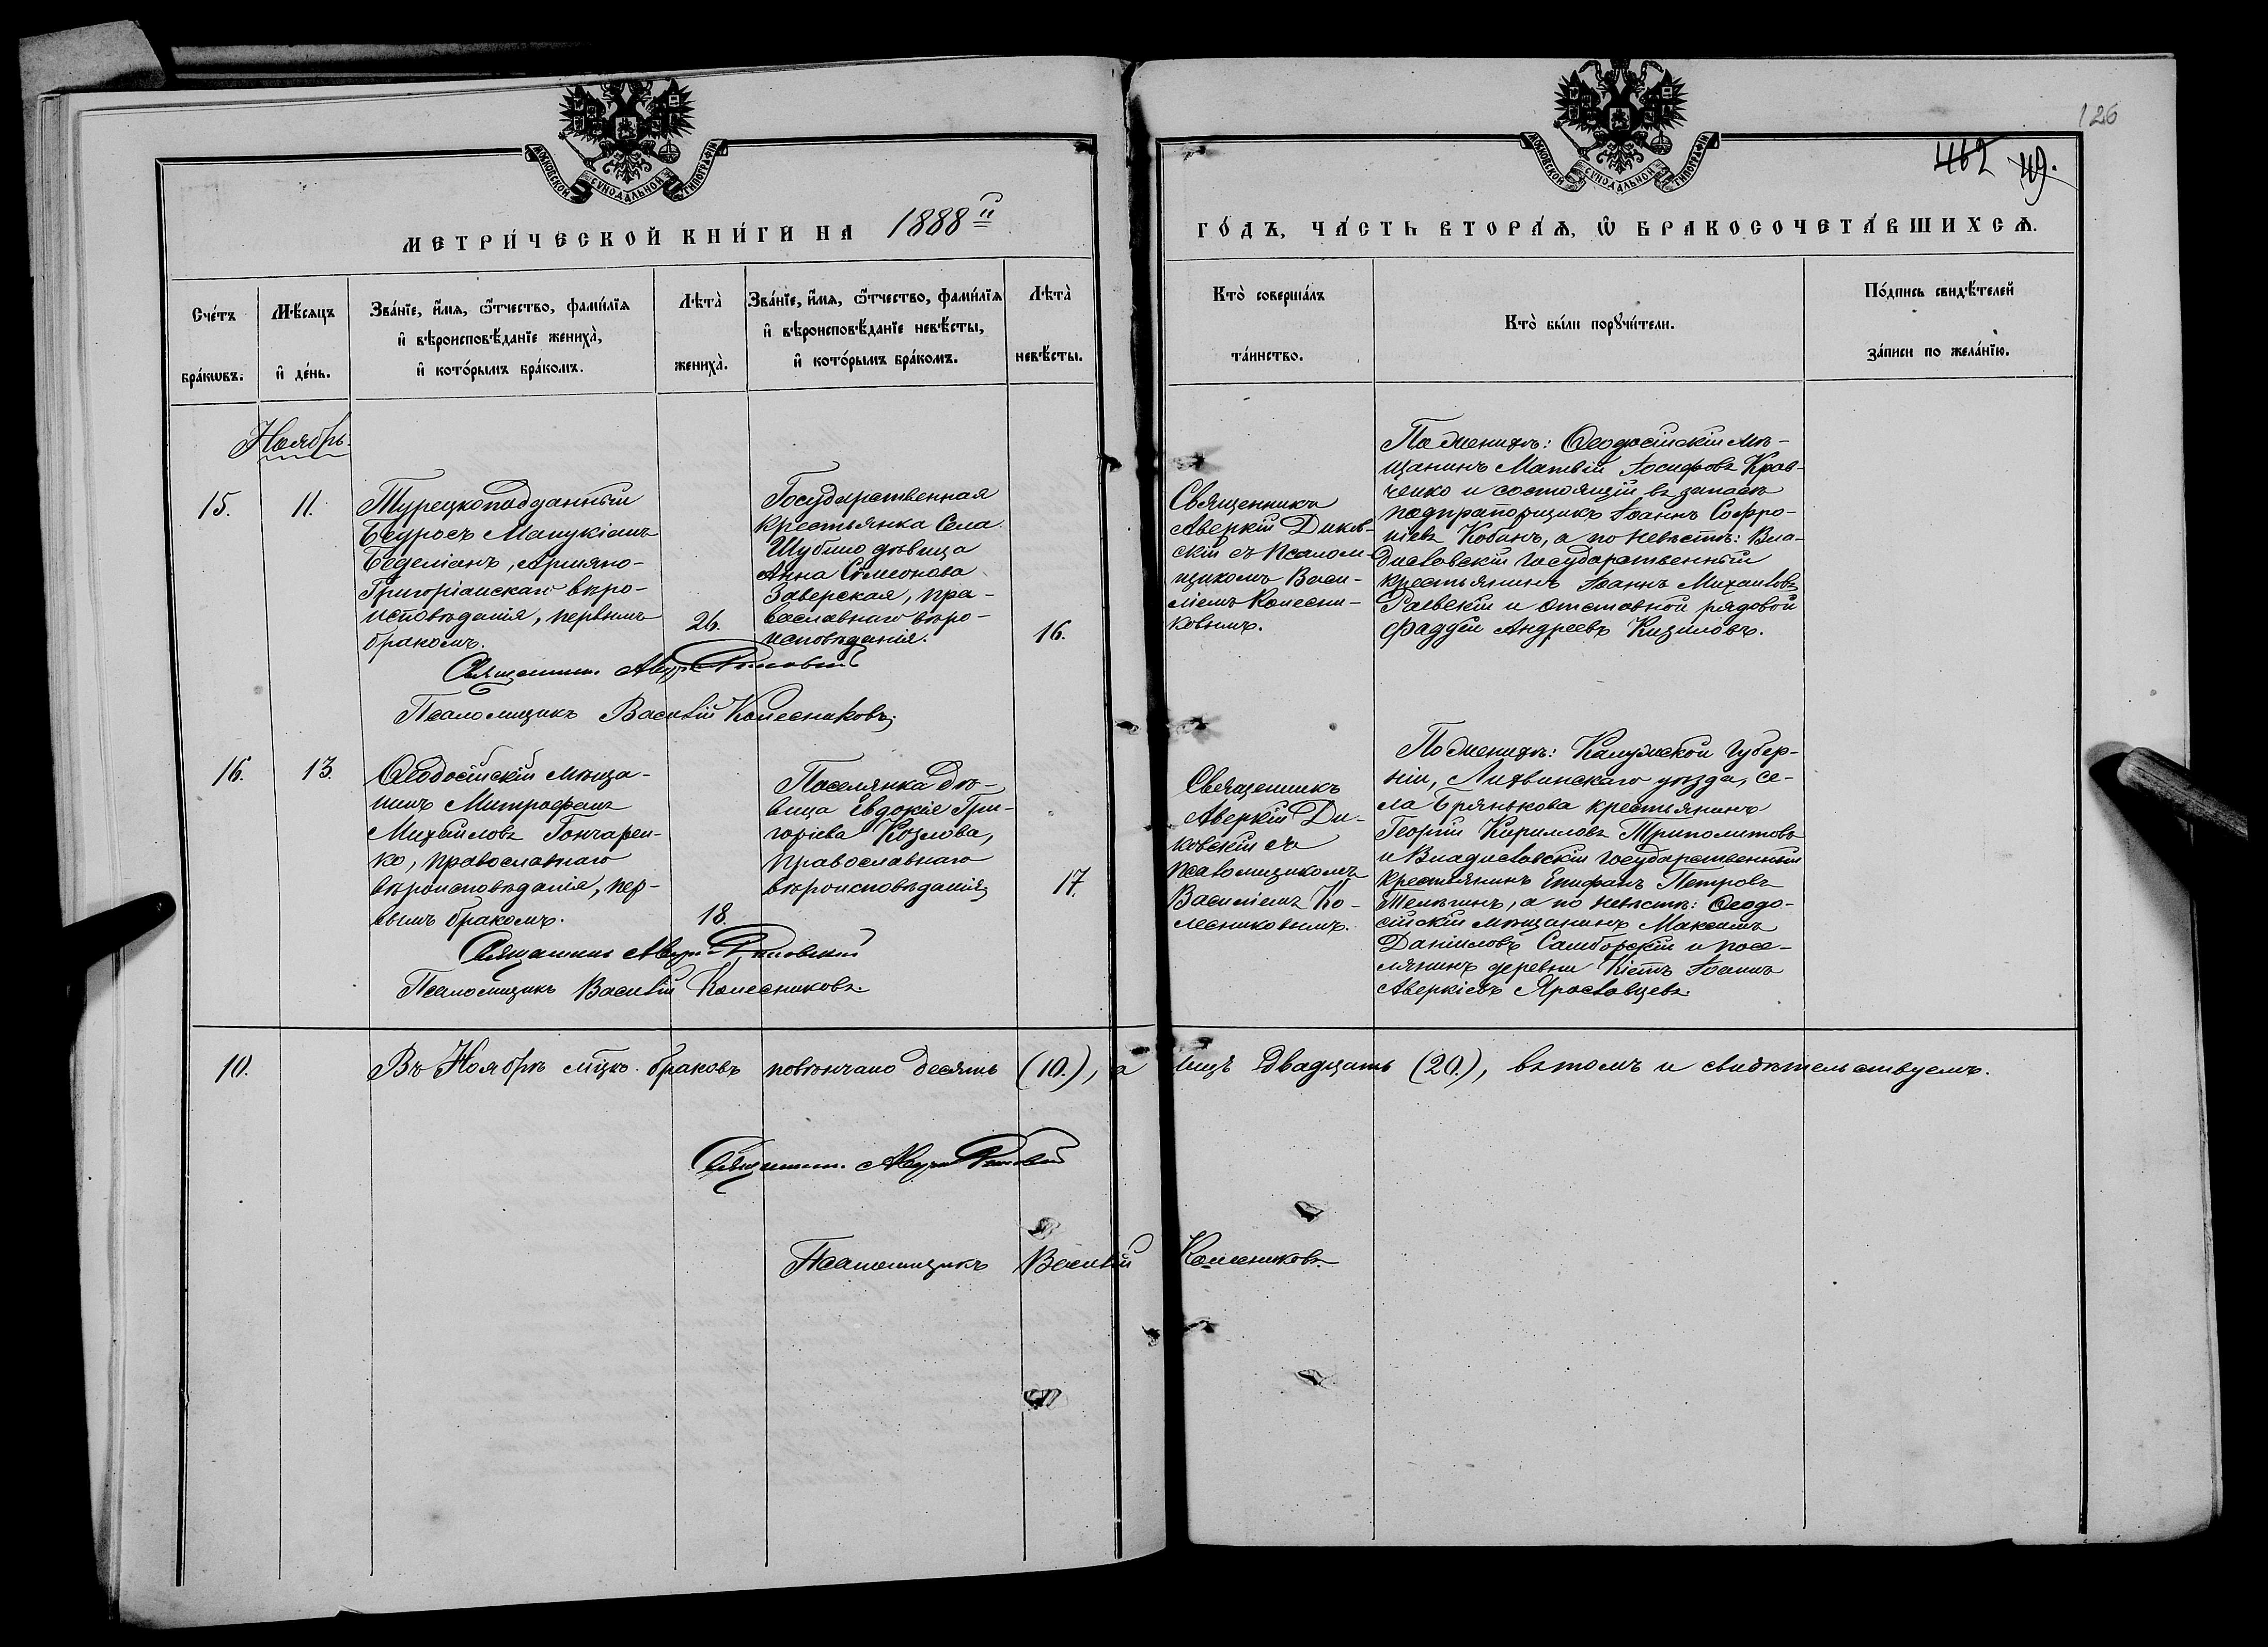 126
462 49.
МОСКОВСКОЙ СУНОДАЛЬНОЙ ТИПОГРАФІИ
МОСКОВСКОЙ СУНОДАЛЬНОЙ ТИПОГРАФІИ
МЕТРИ́ЧЕСКОЙ КНИ́ГИ НА 1888й
ГО́ДЪ, ЧА́СТЬ ВТОРА́Ѧ, Ѽ БРАКОСОЧЕТА́ВШИХСѦ.
Сче́тъ бра́кѡвъ.
Мѣ́сяцъ и҆ де́нь.
Зва́нїе, и҆́мя, ѻ҆́тчество, фами́лїя
и҆ вѣроисповѣ́данїе жениха̀,
и҆ кото́рымъ бра́комъ.
Лѣта̀ жениха̀.
Зва́нїе, и҆́мя, ѻ҆́тчество, фами́лїя
и҆ вѣроисповѣ́данїе невѣ́сты,
и҆ кото́рымъ бра́комъ.
Лѣта̀ невѣ́сты.
Кто̀ соверша́лъ
та́инство.
Кто̀ бы́ли порꙋчи́тели.
По́дпись свидѣ́телей
за́писи по жела́нїю.
Ноябрь.
15.
11.
Турецкоподданный
Беуросъ Манукіанъ
Беделіанъ, Армяно-
Григоріанскаго вѣро-
исповѣданія, первымъ
бракомъ.
26.
Государственная
крестьянка Села
Шубино дѣвица
Анна Симеонова
Заверская, пра-
вославнаго вѣро-
исповѣданія.
16.
Священникъ
Аверкій Диков-
скій съ псалом-
щикомъ Васи-
ліемъ Колесни-
ковымъ.
По женихѣ: Ѳеодосійскій мѣ-
щанинъ Матвій Іосифовъ Крав-
ченко и состоящій въ запасѣ
подпрапорщикъ Іоаннъ Софро-
ніевъ Кобанъ, а по невѣстѣ: Вла-
диславскій государственный
крестьянинъ Іоаннъ Михаиловъ
Раевскій и отставной рядовой
Фаддей Андреевъ Кизиловъ.
Священникъ Аверкій Диковскій
Псаломщикъ Василій Колесниковъ
16.
13.
Ѳеодосійскій мѣща-
нинъ Митрофанъ
Михайловъ Гончарен-
ко, православнаго
вѣроисповѣданія, пер-
вымъ бракомъ.
18.
Поселянка дѣ-
вица Евдокія Гри-
горіева Козлова,
православнаго
вѣроисповѣданія
17.
Священникъ
Аверкій Ди-
ковскій съ
псаломщикомъ
Василіемъ Ко-
лесниковымъ.
По женихѣ: Калужской губер-
ніи, Лихвинскаго уѣзда, се-
ла Брянькова крестьянинъ
Георгій Кирилловъ Триполитовъ
и Владиславскій государственный
крестьянинъ Епифанъ Петровъ
Телегинъ, а по невѣстѣ: Ѳеодо-
сійскій мѣщанинъ Максимъ
Даніиловъ Самборскій и посе-
лянинъ деревни Кіетъ Іоаннъ
Аверкіевъ Ярославцевъ
Священникъ Аверкій Диковскій
Псаломщикъ Василій Колесниковъ
10. Въ Ноябрѣ мѣцѣ браковъ повѣнчано десять (10.), а лицъ двадцать (20.), въ томъ и свидѣтельствуемъ.
Священникъ Аверкій Диковскій
Псаломщикъ Василій Колесниковъ